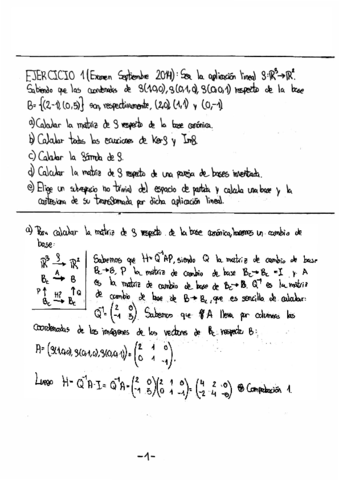 EJERCICIO 1 (Examen Septiembre 2014): Sea la aplicación lineal f: ℝ³→ℝ².
Sabiendo que las coordenadas de f(1,0,0), f(0,1,0), f(0,0,1) respecto de la base
B = {(2,-1),(0,5)} son, respectivamente, (2,0), (1,1) y (0,-1)
a) Calcular la matriz de f respecto de la base canónica.
b) Calcular las ecuaciones de Kerf y Imf.
c) Calcular la fórmula de f.
d) Calcular la matriz de f respecto de una pareja de bases inventada.
e) Elige un subespacio no trivial del espacio de partida y calcula una base y la
cartesiana de su transformada por dicha aplicación lineal.
a) Para calcular la matriz de f respecto de la base canónica, haremos un cambio de
base:
ℝ³ f→ ℝ² Sabemos que H = Q⁻¹AP, siendo Q la matriz de cambio de base
Bc A→ B Bc→B, P la matriz de cambio de base Bc→Bc = I y A
P↑ ↑Q es la matriz de cambio de base de Bc→B. Q⁻¹ es la matriz
Bc H?→ Bc de cambio de base de B→Bc, que es sencilla de calcular:
Q⁻¹ = (2 0; -1 5). Sabemos que A lleva por columnas las
coordenadas de las imágenes de los vectores de Bc respecto B:
A = (f(1,0,0), f(0,1,0), f(0,0,1)) = (2 1 0; 0 1 -1).
Luego H = Q⁻¹·A·I = Q⁻¹A = (2 0; -1 5)(2 1 0; 0 1 -1) = (4 2 0; -2 4 -5) Comprobación 1.
-1-